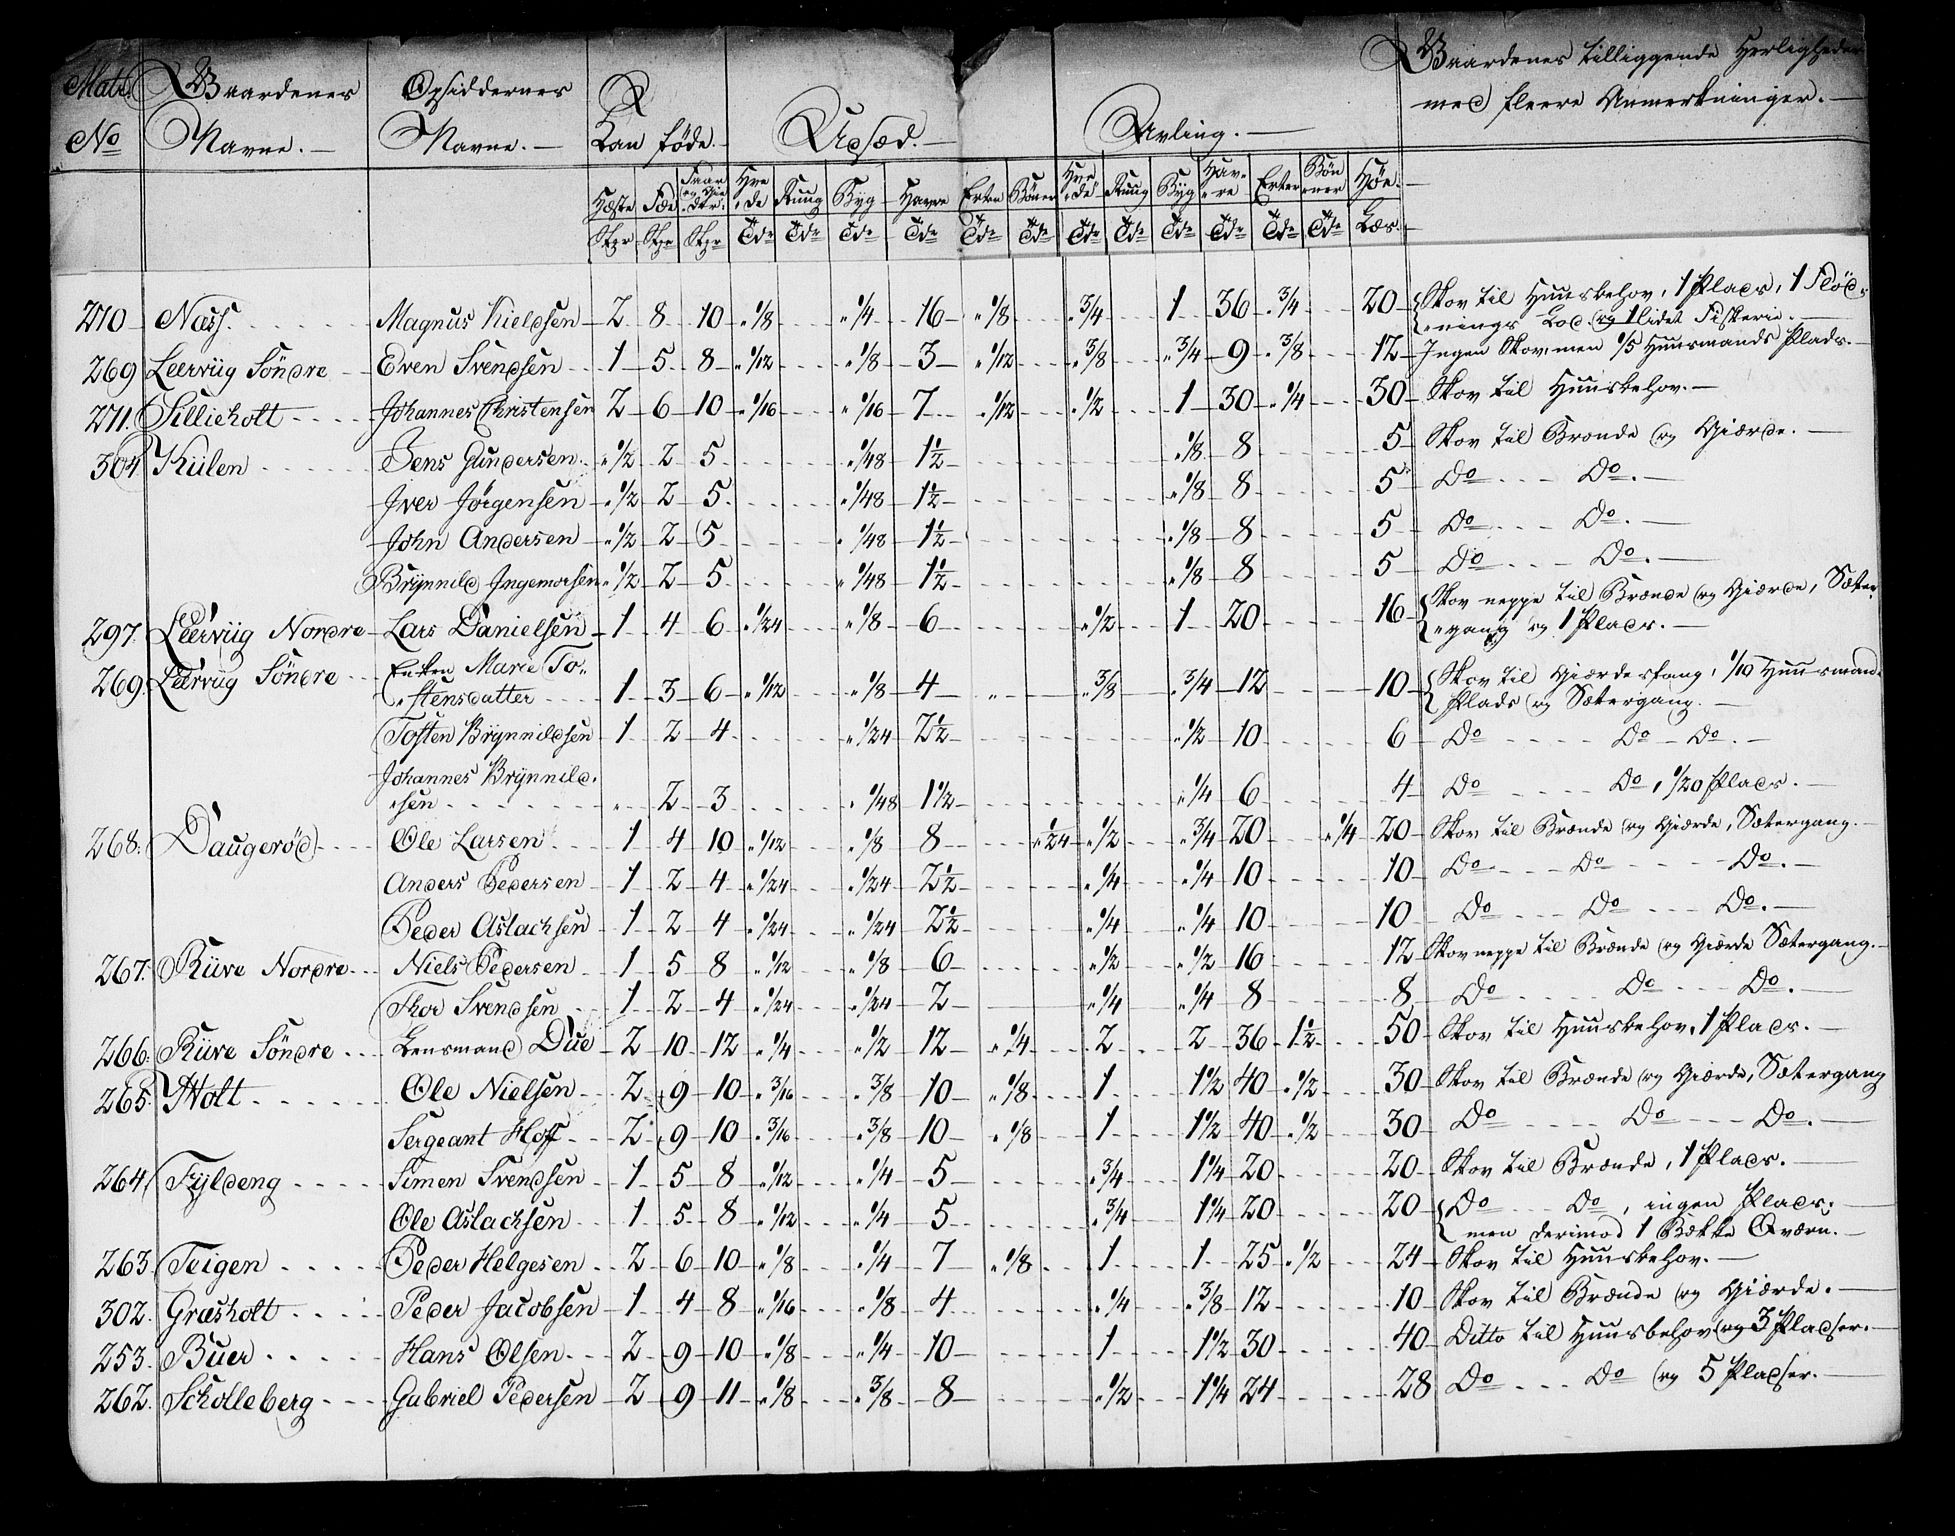 Matr. No | Gaardenes Navne.— | Opsiddernes Navne.— | Kan føde.— | Udsæd.— | Avling.— | Gaardenes tilliggende Herligheder med fleere Anmerkninger.—
Heste | Fæe | Faar og Gie | Hve„de | Rung | Byg | Havre | Erter | Bøner | Hve„de | Rung | Byg | Hav„re | Erter | Bønner | Høe.
Stkr | Stkr | Stkr | Tdr | Tdr | Tdr | Tdr | Tdr | Tdr | Tdr | Tdr | Tdr | Tdr | Tdr | Tdr | Læs
270 Nass. Magnus Kieldsen 2 8 10 „1/8 „1/4 16 „1/8 „3/4 1 36 „3/4 20 Skov til Huusbehov, 1 Plads, 1 Flød„
„nings Lod og lidet Fiskerie.—
269 Leerviig Söndre Even Svendsen 1 5 8 „1/12 „1/8 3 „1/12 „3/8 „3/4 9 „3/8 12 Ingen Skov, men 1/5 Huusmands Plads.—
271. Sillieholt Johannes Christensen 2 6 10 „1/16 „1/16 7 „1/12 „1/2 1 30 „1/4 30 Skov til Huusbehov.—
304 Kiilen Jens Gundersen „1/2 2 5 „1/48 1 1/2 „1/8 8 5 Skov til Brænde og Giærde.—
Iver Jörgensen „1/2 2 5 „1/48 1 1/2 „1/8 8 5 Do Do.—
John Andersen „1/2 2 5 „1/48 1 1/2 „1/8 8 5 Do Do.—
Brynnild Ingemorsen „1/2 2 5 „1/48 1 1/2 „1/8 8 5 Do Do.—
297. Leerviig Nordre Lars Danielsen 1 4 6 „1/24 „1/8 6 „1/2 1 20 16 Skov neppe til Brænde og Giærde, Sæter„
„gang og 1 Plads.—
269. Leerviig Söndre Enken Marie To„
„stensdatter 1 3 6 „1/12 „1/8 4 „ „3/8 „3/4 12 10 Skov til Giærdefang, 1/10 Huusmands
Plads og Sætergang.—
Tosten Brynnildsen 1 2 4 „1/24 2 1/2 „1/2 10 6 Do Do Do.—
Johannes Brynnild„
„sen „ 2 3 „1/48 1 1/2 „1/4 6 4 Do Do, 1/20 Plads.—
268. Daugeröd Ole Larsen 1 4 10 „1/12 „1/8 8 „1/24 „1/2 „3/4 20 „1/4 20 Skov til Brænde og Giærde, Sætergang.—
Anders Pedersen 1 2 4 „1/24 „1/24 2 1/2 „1/4 „1/4 10 10 Do Do Do.—
Peder Aslachsen 1 2 4 „1/24 „1/24 2 1/2 „1/4 „1/4 10 10 Do Do Do.—
267. Riive Nordre Niels Pedersen 1 5 8 „1/12 „1/8 6 „1/2 „1/2 16 12 Skov neppe til Brænde og Giærde Sætergang.—
Thor Svendsen 1 2 4 „1/24 „1/24 2 „1/4 „1/4 8 8 Do Do Do.—
266. Riive Söndre Lensmand Due 2 10 12 „1/4 „1/2 12 „1/4 2 2 36 1 1/2 50 Skov til Huusbehov, 1 Plads.—
265. Holt Ole Nielsen 2 9 10 „3/16 „3/8 10 „1/8 1 1 1/2 40 „1/2 30 Skov til Brænde og Giærde, Sætergang
Sergeant Hoff 2 9 10 „3/16 „3/8 10 „1/8 1 1 1/2 40 „1/2 30 Do Do Do.—
264 Fyldeng Simen Svendsen 1 5 8 „1/12 „1/4 5 „3/4 1 1/4 20 20 Skov til Brænde, 1 Plads.—
Ole Aslachsen 1 5 8 „1/12 „1/4 5 „3/4 1 1/4 20 20 Do Do, ingen Plads;
men derimod 1 Bække Qværn.—
263. Teigen Peder Helgesen 2 6 10 „1/8 „1/4 7 „1/8 1 1 25 „1/2 24 Skov til Huusbehov.—
302. Græsholt Peder Jacobsen 1 4 8 „1/16 „1/8 4 „1/4 „3/8 12 10 Skov til Brænde og Giærde.—
253. Buer Hans Olsen 2 9 10 „1/8 „1/4 10 1 1 1/2 30 40 Ditto til Huusbehov og 3 Pladser.—
262. Scholleberg Gabriel Pedersen 2 9 11 „1/8 „3/8 8 „1/2 1 1/4 24 28 Do Do og 5 Pladser.—